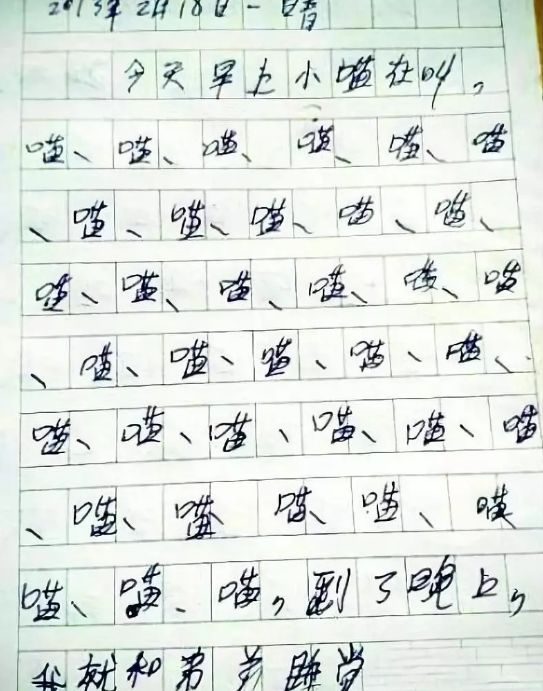 2013年2月18日一 晴
今天早上小喵在叫，
喵、喵、喵、喵、喵、喵
、喵、喵、喵、喵、喵、
喵、喵、喵、喵、喵、喵
、喵、喵、喵、喵、喵、
喵、喵、喵、喵、喵、喵
、喵、喵 喵、喵、喵
喵、喵、喵，到了晚上，
我就和弟弟睡觉